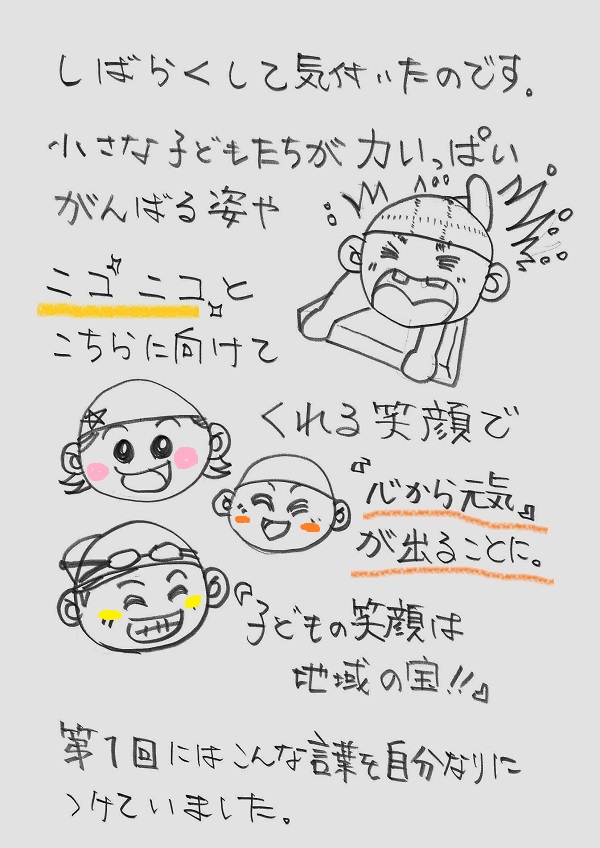 しばらくして気付いたのです。
小さな子どもたちが力いっぱい
がんばる姿や
ニコニコと
こちらに向けて
くれる笑顔で
『心から元気』
が出ることに。
『子どもの笑顔は
地域の宝!!』
第1回にはこんな言葉を自分なりに
つけていました。